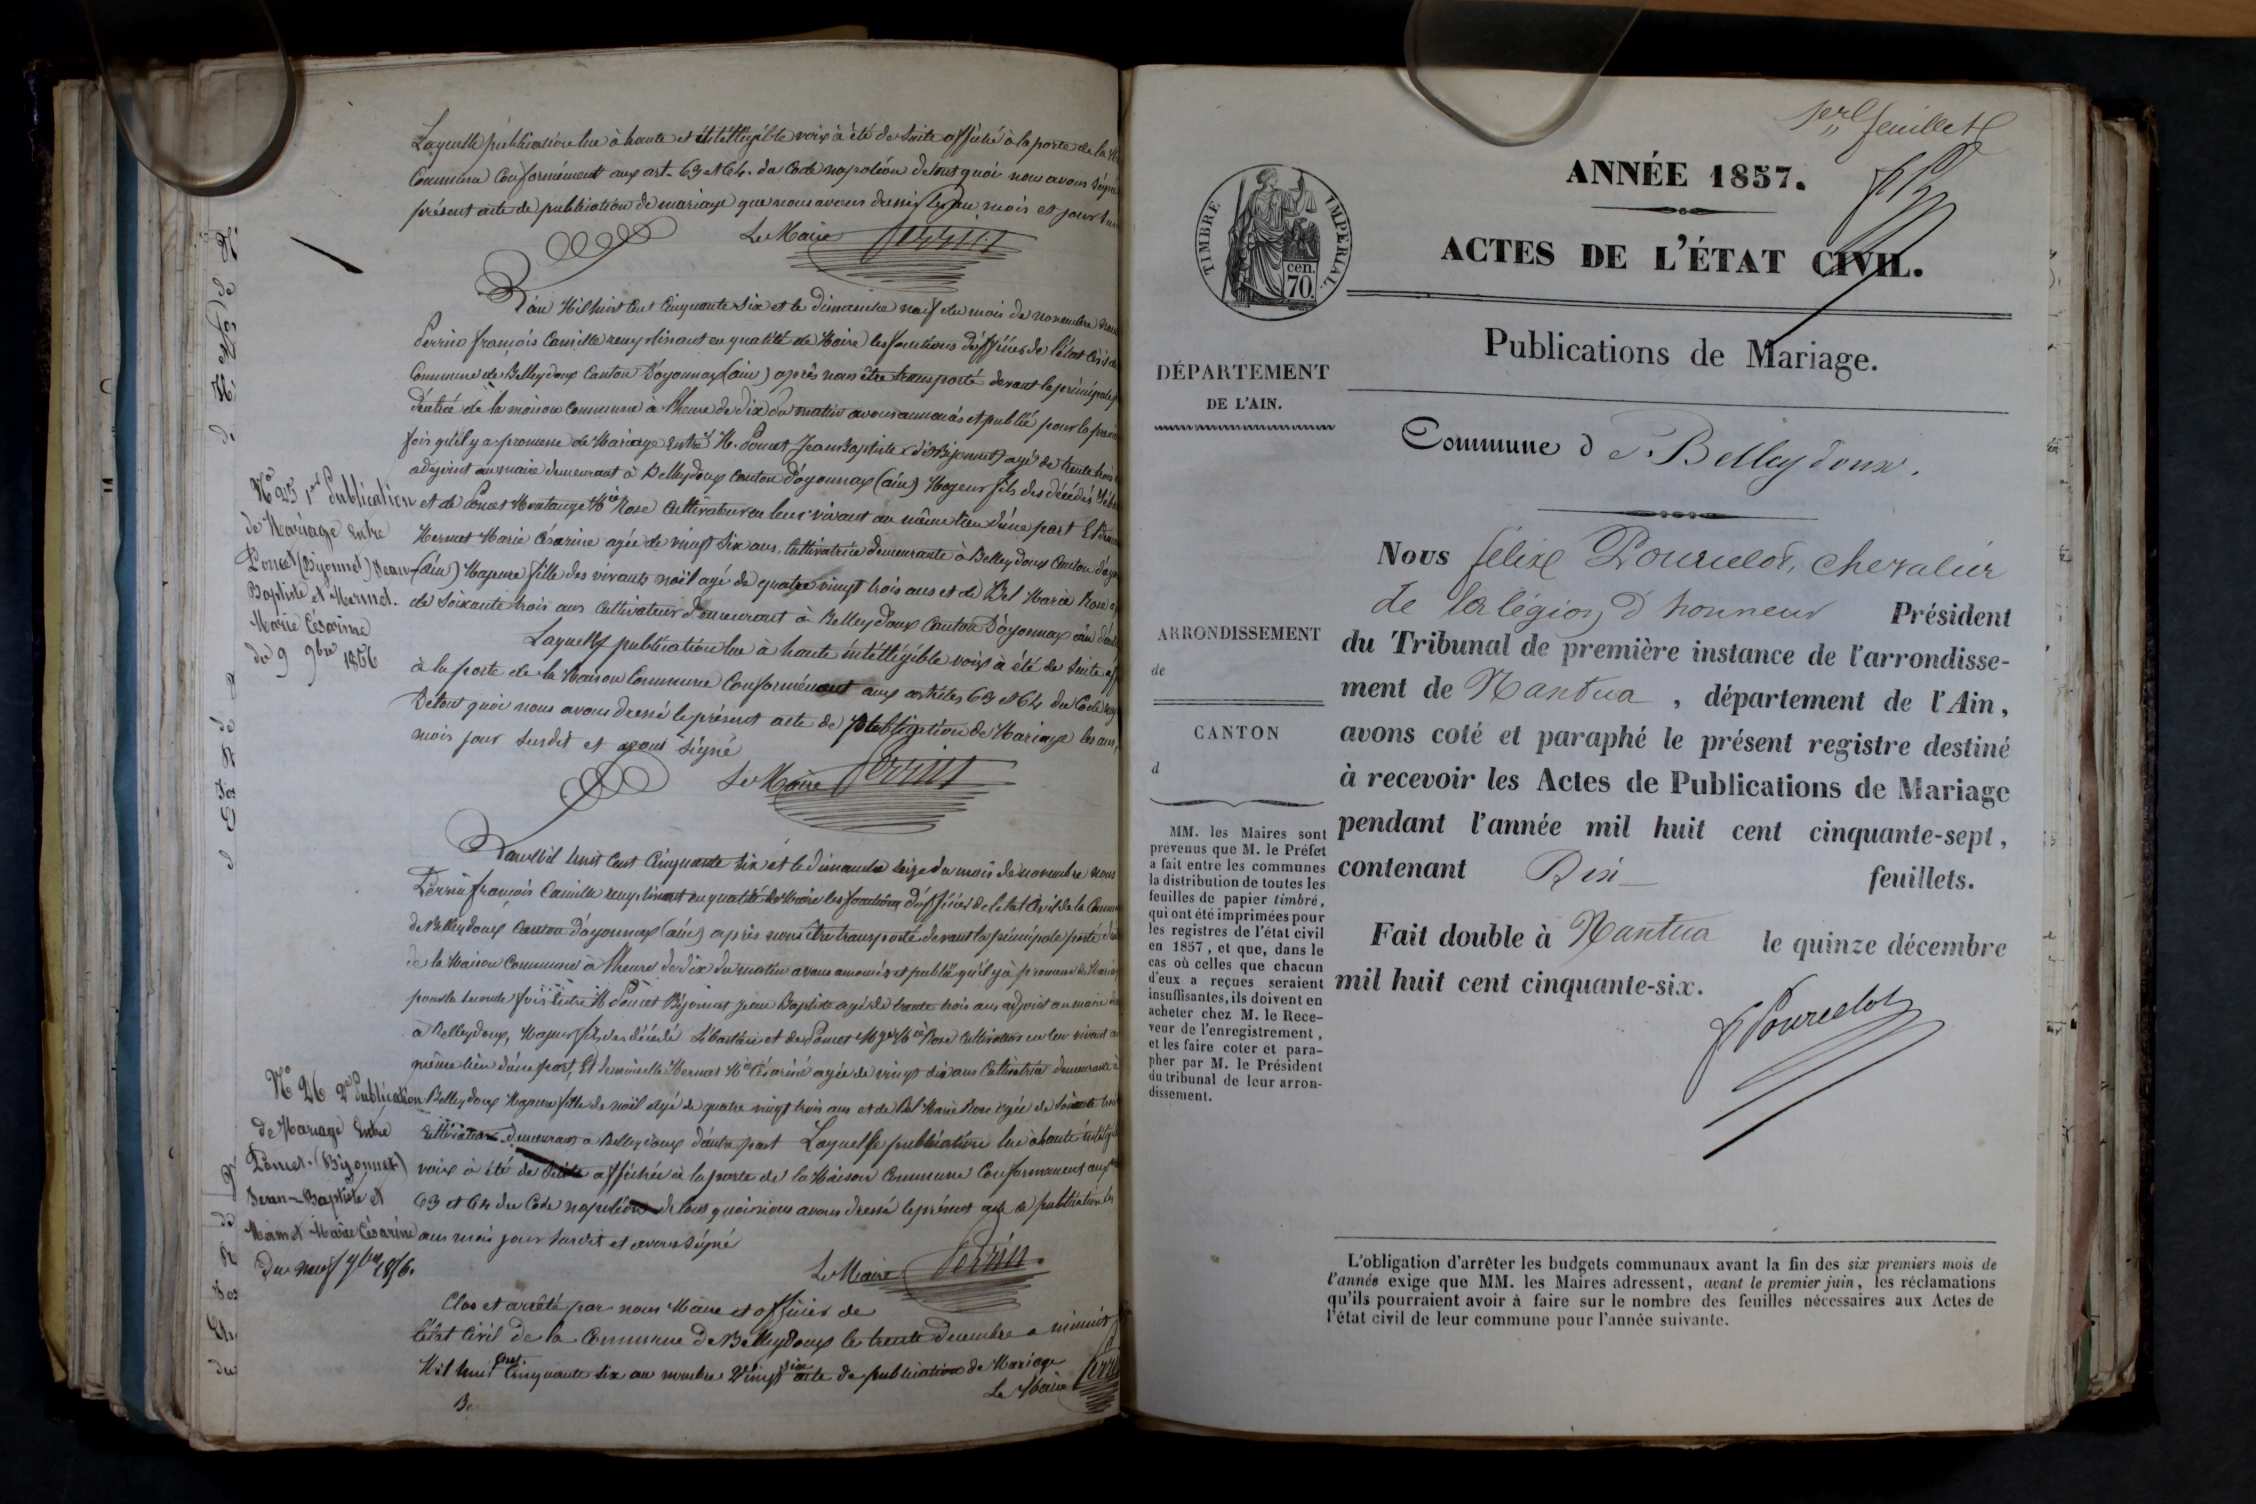 Laquelle publication lue à haute et intélligible voix à été de suite affiché à la porte de la
Commune Conformément aux art. 63 et 64. du Code napoléon de tout quoi nous avons signé
présent acte de publication de mariage que nous avons dressé les an, mois et jour
Le Maire Perrin
L'an Mil huit Cent Cinquante Six et le dimanche neuf du mois de novembre nous
Perrin françois Camille remplissant en qualité de Maire les fonctions d'officier de l'état Civil
Commune de Belleydoux Canton D'oyonnax (ain) après nous être transporté devant la principale
d'entrée de la maison Commune à l'heure de dix du matin avons annoncés et publié pour la
fois qu'il y a promesse de Mariage Entre M. Poncet Jean Baptiste (dit Bijonnet) agé de trente trois
adjoint au maire demeurant à Belleydoux Canton d'oyonnax (ain) Majeur fils des décédés
N° 25 1re Publication
de Mariage Entre
Poncet (Bijonnet) Jean-
Baptiste et Mermet.
Marie Césarine
du 9 9bre 1856
et de Poncet Montange Mie Rose Cultivateur en leur vivant au même lieu d'une part Et
Mermet Marie Césarine agée de vingt Six ans, Cultivatrice demeurante à Belleydoux Canton
(ain) Majeure fille des vivants noël agé de quatre vingt trois ans et de Bel Marie Rose
de Soixante trois ans Cultivateur demeurant à Belleydoux Canton D'oyonnax ain
Laquelle publication lue à haute intélligible voix à été de Suite
à la porte de la Maison Commune Conformément aux articles 63 et 64 du Code
Détout quoi nous avons dressé le présent acte de publication de Mariage les an,
mois jour Susdit et avons signé
Le Maire Perrin
L'an Mil huit Cent Cinquante Six et le dimanche Seize du mois de novembre nous
Perrin françois Camille remplissant en qualité de Maire les fonctions d'officier de l'état Civil de la
de Belleydoux Canton d'oyonnax (ain) après nous être transporté devant la principale porte
de la Maison Commune à l'heure de dix du matin avons annoncés et publié qu'il y à promesse de
pour la seconde fois Entre M Poncet Bijonnet Jean Baptiste agé de trente trois ans adjoint au maire
à Belleydoux, Majeur fils des décédé Sébastien et de Poncet Mge Mie Rose Cultivateurs en leur vivant au
même lieu d'une part, Et demoiselle Mermet Mie Césarine agée de vingt six ans Cultivatrice demeurante à
N° 26 2e Publication
de Mariage Entre
Poncet. (Bijonnet)
Jean-Baptiste et
Mermet Marie Césarine
du neuf 9bre 1856.
Belleydoux Majeure fille de noël agé de quatre vingt trois ans et de Bel Marie Rose agée de Soixante
Cultivateurs demeurans à Belleydoux d'autre part Laquelle publication lue à haute
voix à été de Suite affichée à la porte de la Maison Commune Conformément aux
63 et 64 du Code napoléon de tout quoi nous avons dressé le présent acte de publication les
ans mois jour Susdit et avons signé
Le Maire Perrin.
Clos et arrêté par nous Maire et officier de
l'état Civil de la Commune de Belleydoux le trente decembre a minuit
Mil huit cent Cinquante Six au nombre Vingt six acte de publication de Mariage
Le Maire Perrin
1er feuillet
ANNÉE 1857.
TIMBRE IMPÉRIAL.
cen.
70.
ACTES DE L'ÉTAT CIVIL.
Publications de Mariage.
DÉPARTEMENT
DE L'AIN.
Commune de Belleydoux.
ARRONDISSEMENT
de
CANTON
d
MM. les Maires sont
prévenus que M. le Préfet
a fait entre les communes
la distribution de toutes les
feuilles de papier timbré,
qui ont été imprimées pour
les registres de l'état civil
en 1857, et que, dans le
cas où celles que chacun
d'eux a reçues seraient
insuffisantes, ils doivent en
acheter chez M. le Rece-
veur de l'enregistrement,
et les faire coter et para-
pher par M. le Président
du tribunal de leur arron-
dissement.
Nous félix Pourcelot, chevalier
de la légion d'honneur Président
du Tribunal de première instance de l'arrondisse-
ment de Nantua, département de l'Ain,
avons coté et paraphé le présent registre destiné
à recevoir les Actes de Publications de Mariage
pendant l'année mil huit cent cinquante-sept,
contenant Dix feuillets.
Fait double à Nantua le quinze décembre
mil huit cent cinquante-six.
f Pourcelot
L'obligation d'arrêter les budgets communaux avant la fin des six premiers mois de
l'année exige que MM. les Maires adressent, avant le premier juin, les réclamations
qu'ils pourraient avoir à faire sur le nombre des feuilles nécessaires aux Actes de
l'état civil de leur commune pour l'année suivante.